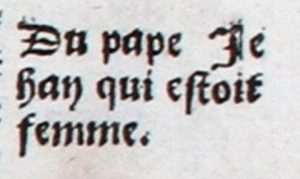 Du pape Je
han qui estoit
femme.